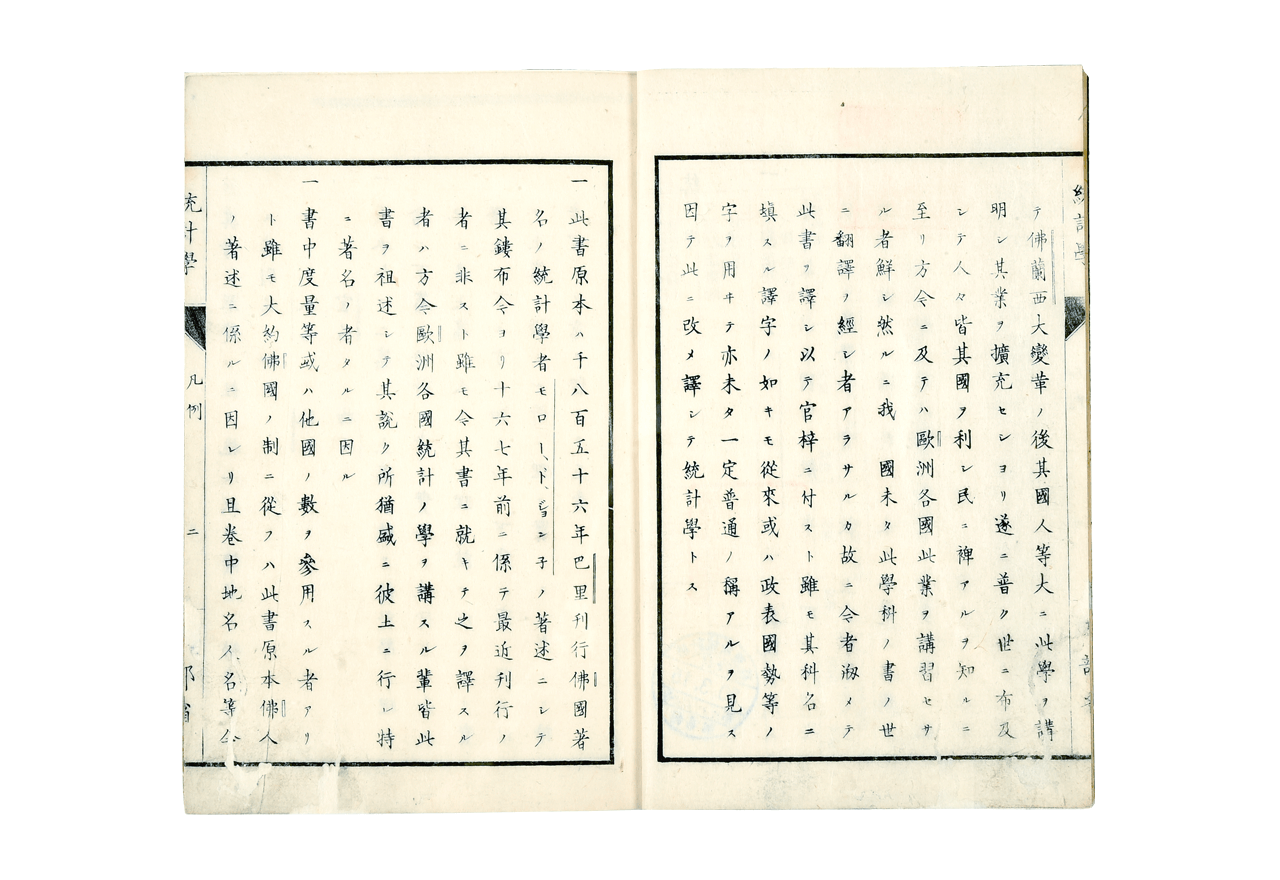 テ佛蘭西大變革ノ後其國人等大ニ此學ヲ講
明シ其業ヲ擴充セシヨリ遂ニ普ク世ニ布及
シテ人々皆其國ヲ利シ民ニ裨アルヲ知ルニ
至リ方今ニ及テハ歐洲各國此業ヲ講習セサ
ル者鮮シ然ルニ我 國未タ此學科ノ書ノ世
ニ翻譯ヲ經シ者アラサルカ故ニ今者剏メテ
此書ヲ譯シ以テ官梓ニ付スト雖モ其科名ニ
填スル譯字ノ如キモ從來或ハ政表國勢等ノ
字ヲ用ヰテ亦未タ一定普通ノ稱アルヲ見ス
因テ此ニ改メ譯シテ統計學トス
一 此書原本ハ千八百五十六年巴里刊行佛國著
名ノ統計學者モロー、ド、ジョン子ノ著述ニシテ
其鏤布今ヨリ十六七年前ニ係テ最近刊行ノ
者ニ非スト雖モ今其書ニ就キテ之ヲ譯スル
者ハ方今歐洲各國統計ノ學ヲ講スル輩皆此
書ヲ祖述シテ其説ク所猶盛ニ彼土ニ行レ特
ニ著名ノ者タルニ因ル
一 書中度量等或ハ他國ノ數ヲ參用スル者アリ
ト雖モ大約佛國ノ制ニ從フハ此書原本佛人
ノ著述ニ係ルニ因レリ且卷中地名人名等
統計學
凡例
二